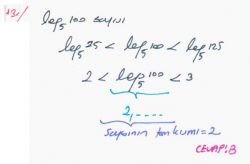 13/
log₅100 sayısı
log₅25 < log₅100 < log₅125
2 < log₅100 < 3
2,....
Sayının tam kısmı = 2
CEVAP: B